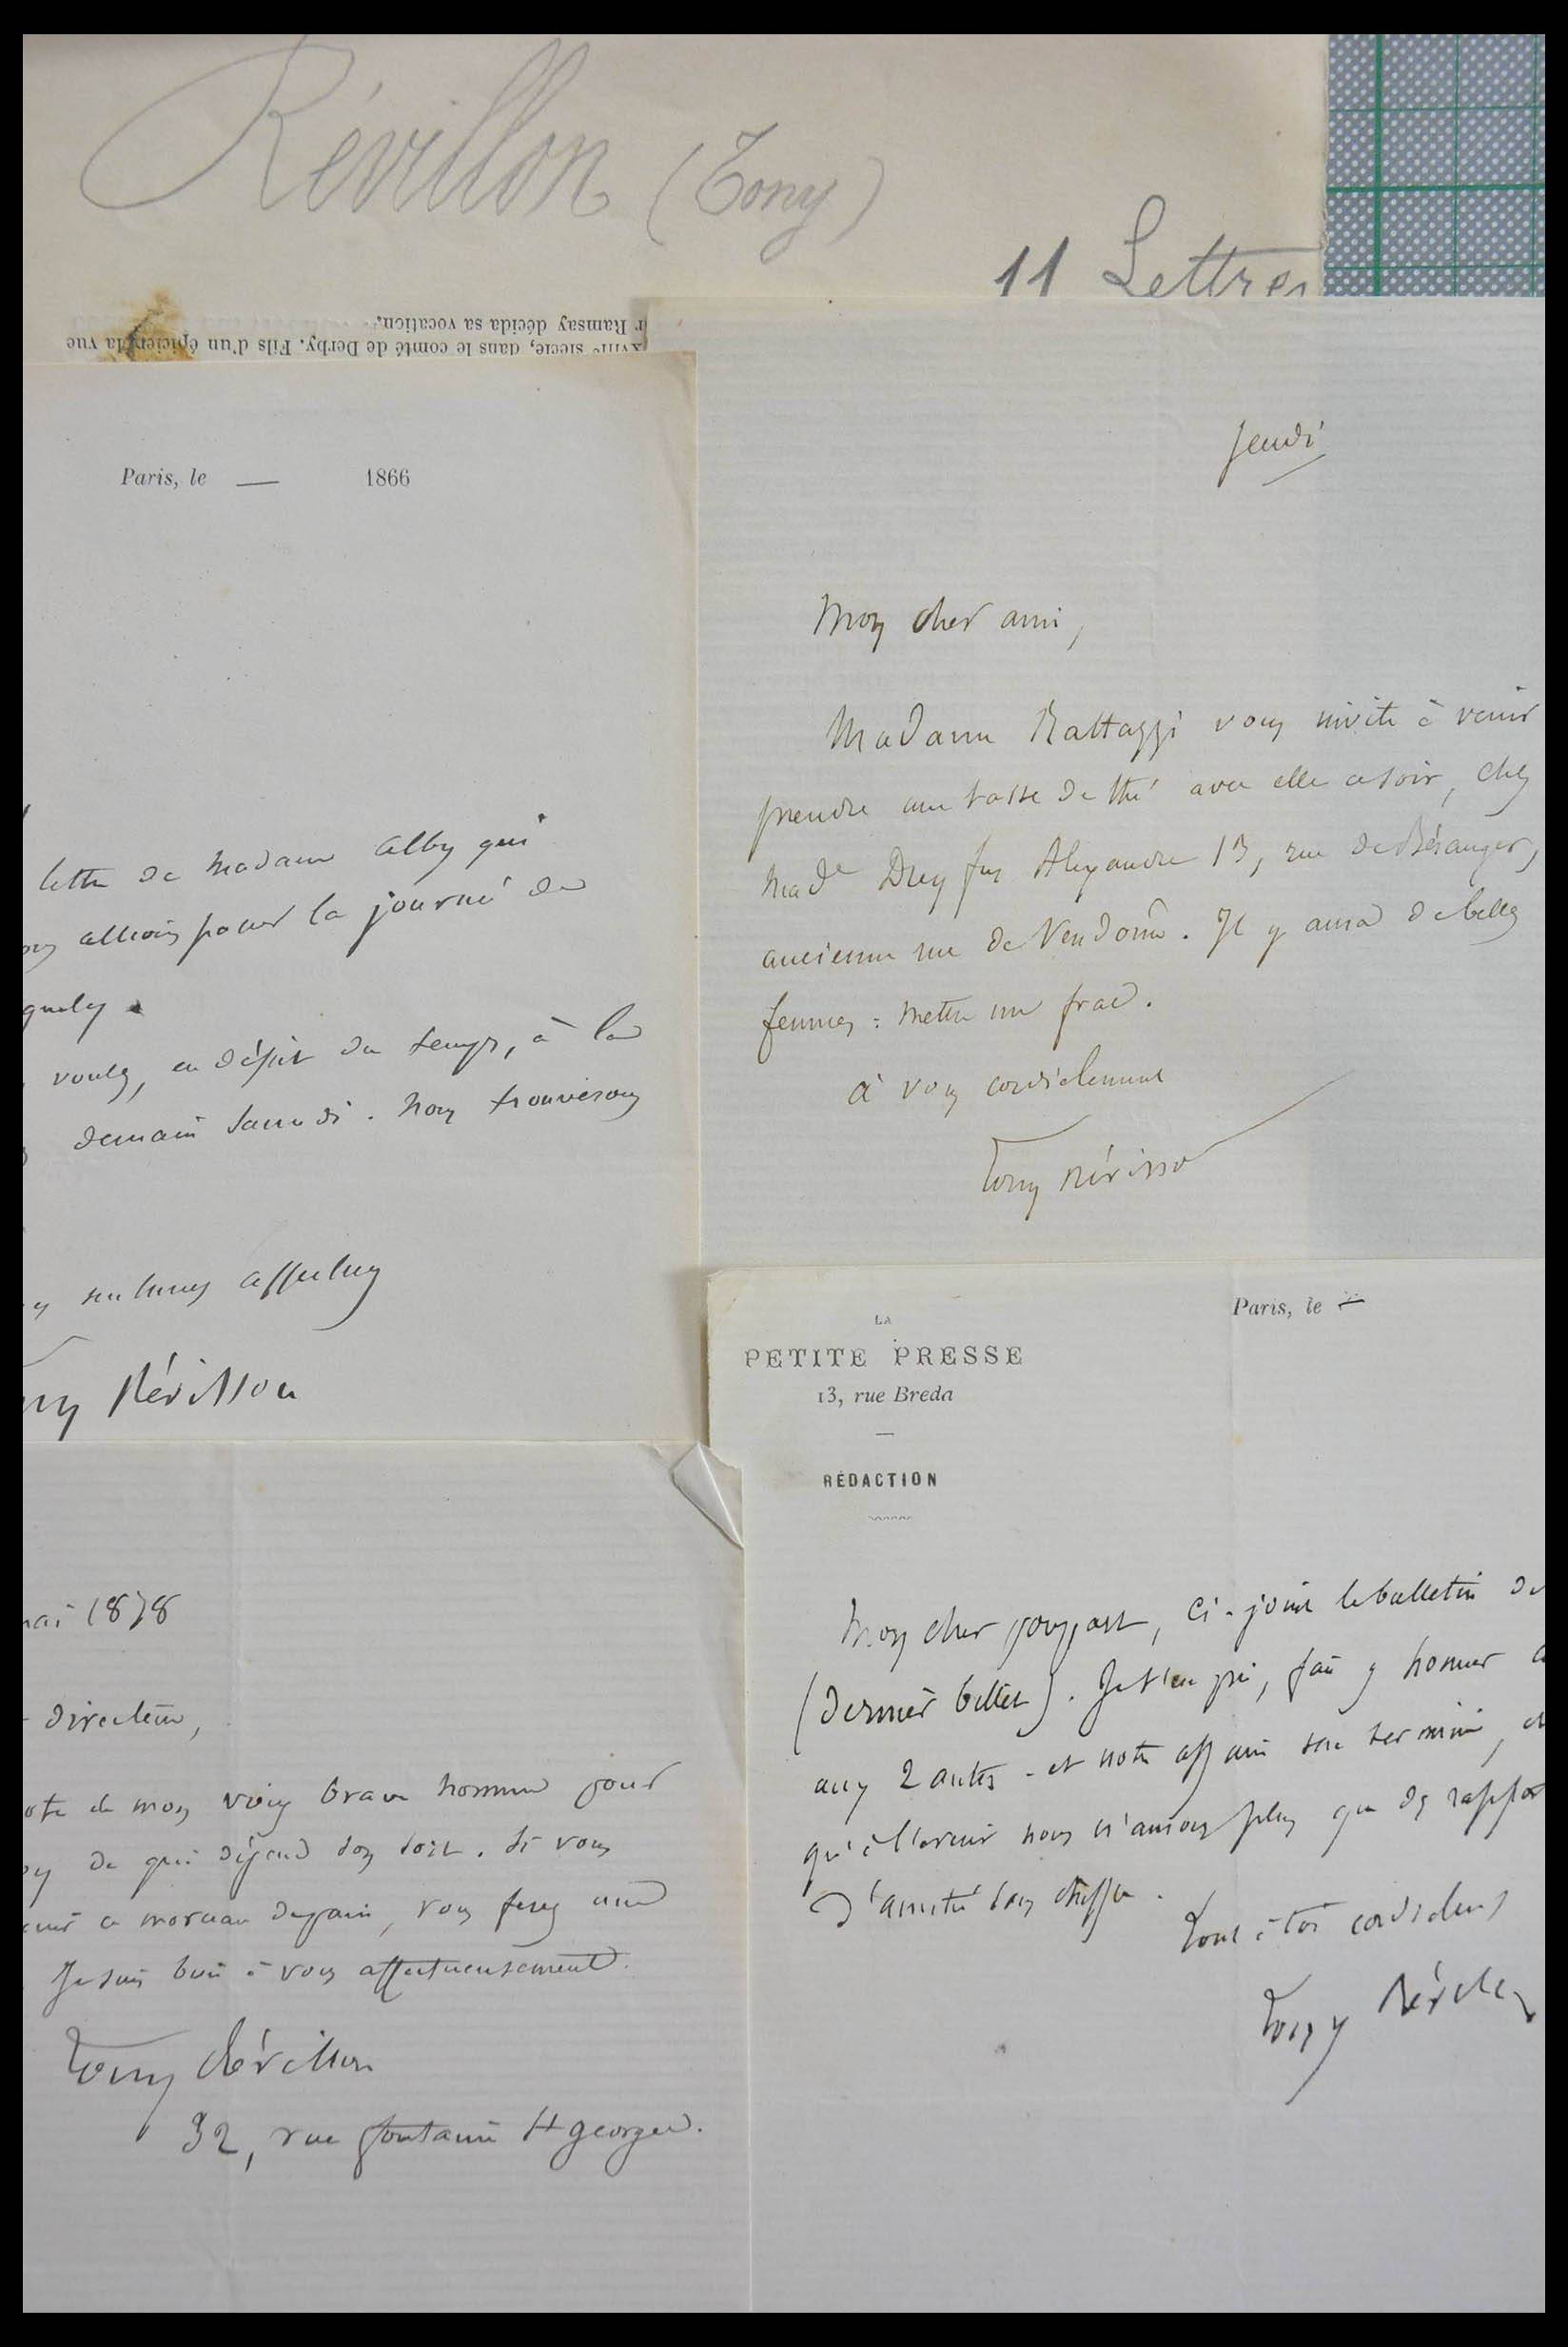 Révillon (Tony)
11 Lettres
r Ramsay décida sa vocation.
XVIIIe siècle, dans le comté de Derby. Fils d'un épicier, la vue
Paris, le — 1866
lettre de Madame Alby qui
allions pour la journée de
voulez, en dépit du temps, à la
demain Samedi. Nous trouverons
affectueux
Révillon
Jeudi
Mon cher ami,
Madame Rattazzi vous invite à venir
prendre une tasse de thé avec elle ce soir, chez
Made Dreyfus Alexandre 13, rue de Béranger,
ancienne rue de Vendôme. Il y aura de belles
femmes : mettre un frac.
à vous cordialement
Tony Révillon
LA
PETITE PRESSE
13, rue Breda
RÉDACTION
Paris, le —
Mon cher, ci-joint le bulletin de
(dernier billet). Je t'en prie, fais y honneur
aux 2 autres - et notre affaire sera terminée, et
qu'à l'avenir nous n'aurons plus que des rappor
d'amitié sans chiffre.
Tout à toi cordialement
Tony Révillon
mai 1878
directeur,
de mon vieux brave homme pour
de qui dépend son sort. Si vous
ce morceau de pain, vous ferez une
Je suis bien à vous affectueusement.
Tony Révillon
32, rue fontaine St georges.